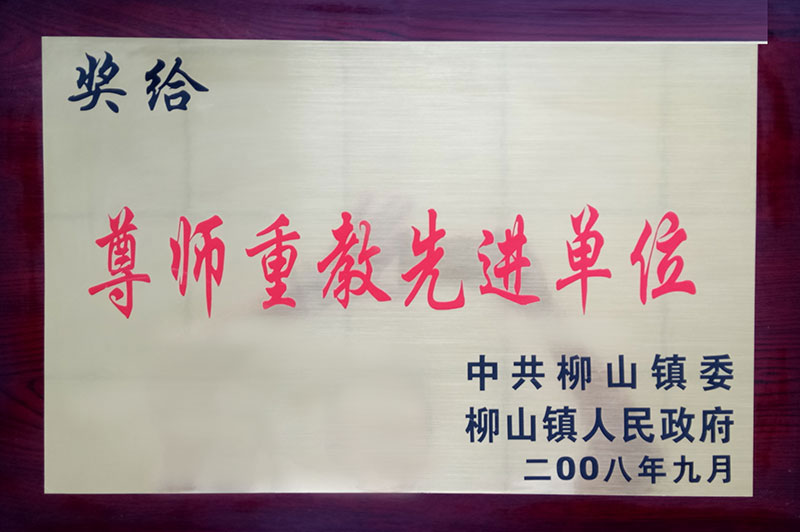 奖给
尊师重教先进单位
中共柳山镇委
柳山镇人民政府
二00八年九月